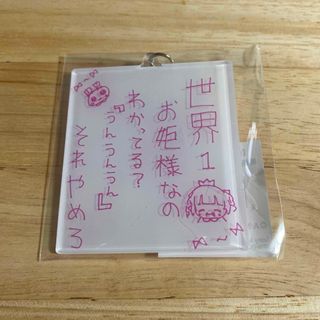 世界1
お姫様なの
わかってる？
『うんうんうん』
そめやさき